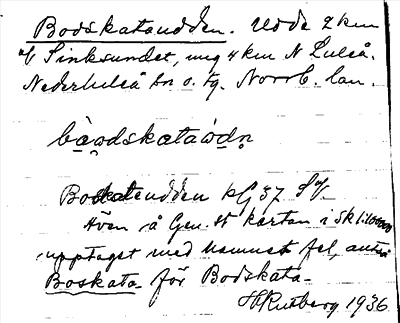 Bodskataudden. Udde 2 km
Sinksundet, 4 km N Luleå.
Nederluleå sn o. tg. Norrb. län.
Bodskataudden
Även å Gen. st kartan i
upptaget med namnet fel,
Boskata- för Bodskata-
H Rutberg 1936